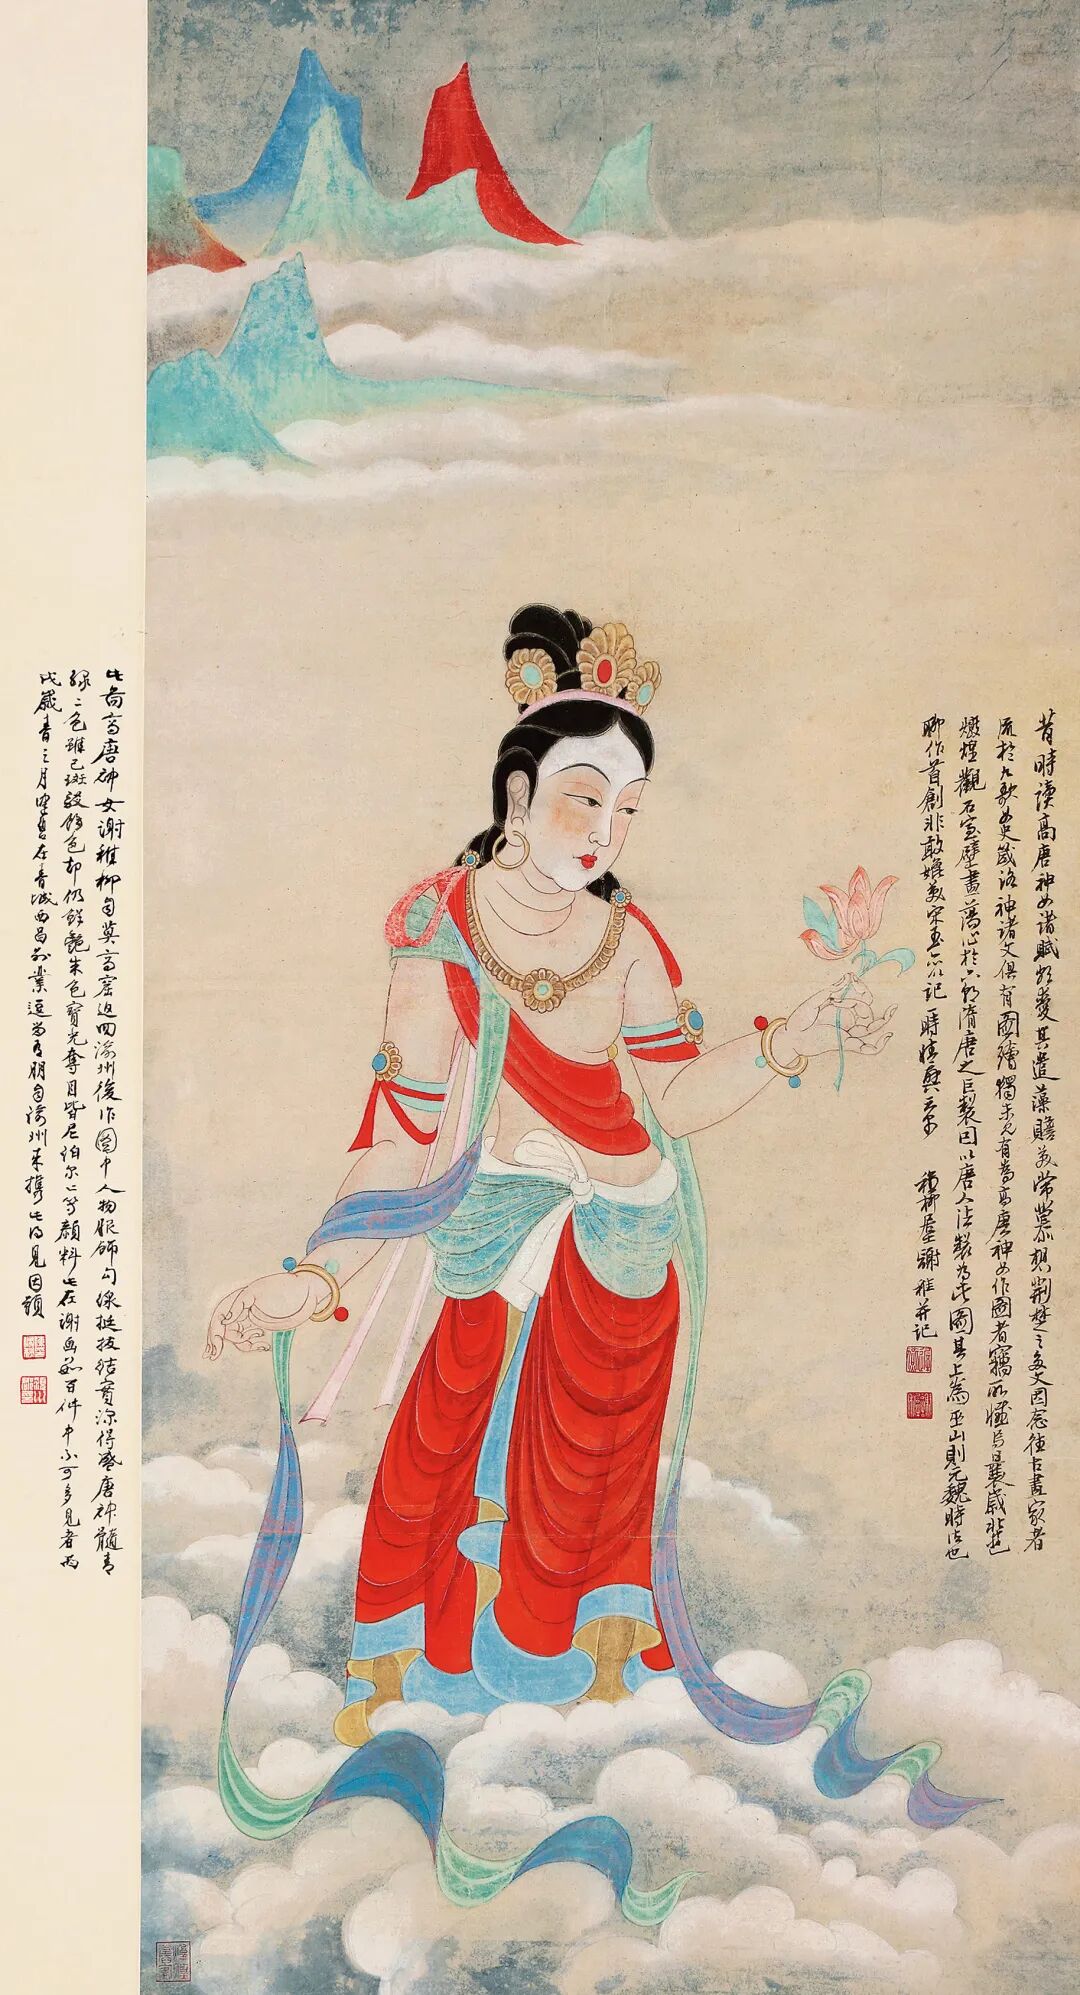 昔時讀高唐神女諸賦頗愛其遣藻贍美常慕想荊楚之多文因念往古畫家者
流於九歌女史箴洛神諸文俱有圖繪獨未見有為高唐神女作圖者竊所憾焉曩歲北
燉煌觀石室壁畫蕩心於六朝隋唐之巨製因以唐人法製為此圖其上為巫山則元魏時法也
聊作首創非敢媲美宋玉亦以記一時情興云爾 稚柳謝稚并記
此高唐神女謝稚柳自莫高窟返回渝州後作圖中人物服飾勾線挺拔結實深得盛唐神髓青
綠二色雖已斑駁餘色却仍鮮艷朱色寶光奪目皆尼泊尔顏料此在謝画百件中不可多見者丙
戌歲春三月在青城西昌別業有朋自渝州來攜此得見因題